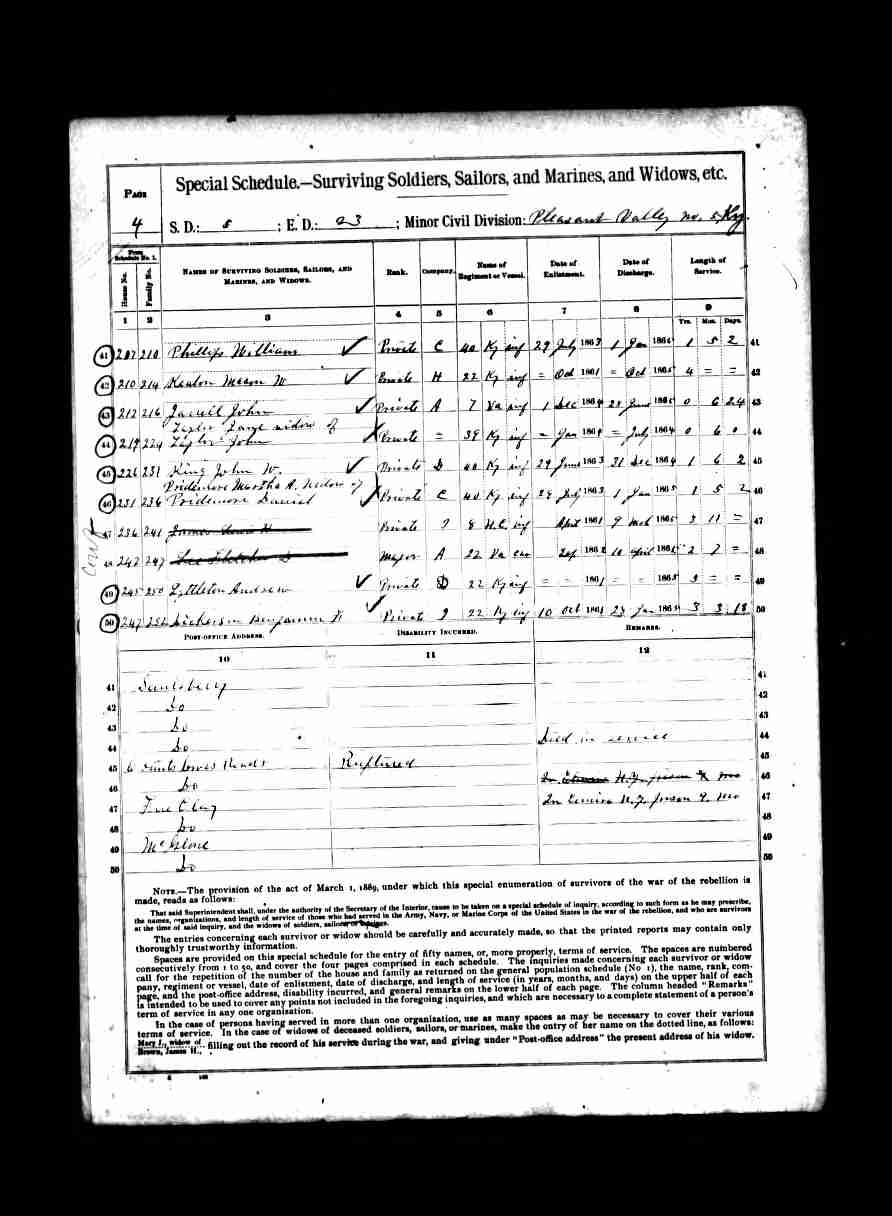 Special Schedule.—Surviving Soldiers, Sailors, and Marines, and Widows, etc.
PAGE 4
S. D.: 5 ; E. D.: 23 ; Minor Civil Division: Pleasant Valley no. 5 Ky.
From Schedule No. 1.
House No. Family No. NAMES OF SURVIVING SOLDIERS, SAILORS, AND MARINES, AND WIDOWS. Rank. Company. Name of Regiment or Vessel. Date of Enlistment. Date of Discharge. Length of Service.
1 2 3 4 5 6 7 8 9
Yrs. Mos. Days.
41 207 210 Phillips William Private C 40 Ky inf 29 July 1863 1 Jan 1865 1 5 2 41
42 210 214 Mason W Private H 22 Ky inf = Oct 1861 = Oct 1865 4 = = 42
43 212 216 John Private A 7 Va inf 1 Dec 1864 25 June 1865 0 6 24 43
widow of
44 219 224 John Private = 39 Ky inf = Jan 1864 = July 1864 0 6 0 44
45 226 231 King John W. Private D 40 Ky inf 29 June 1863 31 Dec 1864 1 6 2 45
Pridemore Martha A. Widow of
46 231 236 Pridemore Daniel Private C 40 Ky inf 29 July 1863 1 Jan 1865 1 5 2 46
Conf
47 236 241 James H Private I 8 inf April 1861 9 Mch 1865 3 11 = 47
48 242 247 Lee Fletcher D Major A 22 Va cav Sep 1862 10 April 1865 2 7 = 48
49 245 250 Lyttleton Andrew Private D 22 Ky inf = = 1861 = = 1865 3 = = 49
50 247 252 Dickerson Benjamin F Private I 22 Ky inf 10 Oct 1861 23 Jan 1865 3 3 13 50
POST-OFFICE ADDRESS. DISABILITY INCURRED. REMARKS.
10 11 12
41 41
42 Do 42
43 Do 43
44 Do Died in service 44
45 Ruptured 45
46 Do In N.Y. prison mo 46
47 In Elmira N.Y. prison 9 mo 47
48 Do 48
49 McGlone 49
50 Do 50
NOTE.—The provision of the act of March 1, 1889, under which this special enumeration of survivors of the war of the rebellion is
made, reads as follows:
That said Superintendent shall, under the authority of the Secretary of the Interior, cause to be taken on a special schedule of inquiry, according to such form as he may prescribe,
the names, organizations, and length of service of those who had served in the Army, Navy, or Marine Corps of the United States in the war of the rebellion, and who are survivors
at the time of said inquiry, and the widows of soldiers, sailors, or marines.
The entries concerning each survivor or widow should be carefully and accurately made, so that the printed reports may contain only
thoroughly trustworthy information.
Spaces are provided on this special schedule for the entry of fifty names, or, more properly, terms of service. The spaces are numbered
consecutively from 1 to 50, and cover the four pages comprised in each schedule. The inquiries made concerning each survivor or widow
call for the repetition of the number of the house and family as returned on the general population schedule (No 1), the name, rank, com-
pany, regiment or vessel, date of enlistment, date of discharge, and length of service (in years, months, and days) on the upper half of each
page, and the post-office address, disability incurred, and general remarks on the lower half of each page. The column headed "Remarks"
is intended to be used to cover any points not included in the foregoing inquiries, and which are necessary to a complete statement of a person's
term of service in any one organization.
In the case of persons having served in more than one organization, use as many spaces as may be necessary to cover their various
terms of service. In the case of widows of deceased soldiers, sailors, or marines, make the entry of her name on the dotted line, as follows:
Mary J., widow of
Brown, James H., filling out the record of his service during the war, and giving under "Post-office address" the present address of his widow.